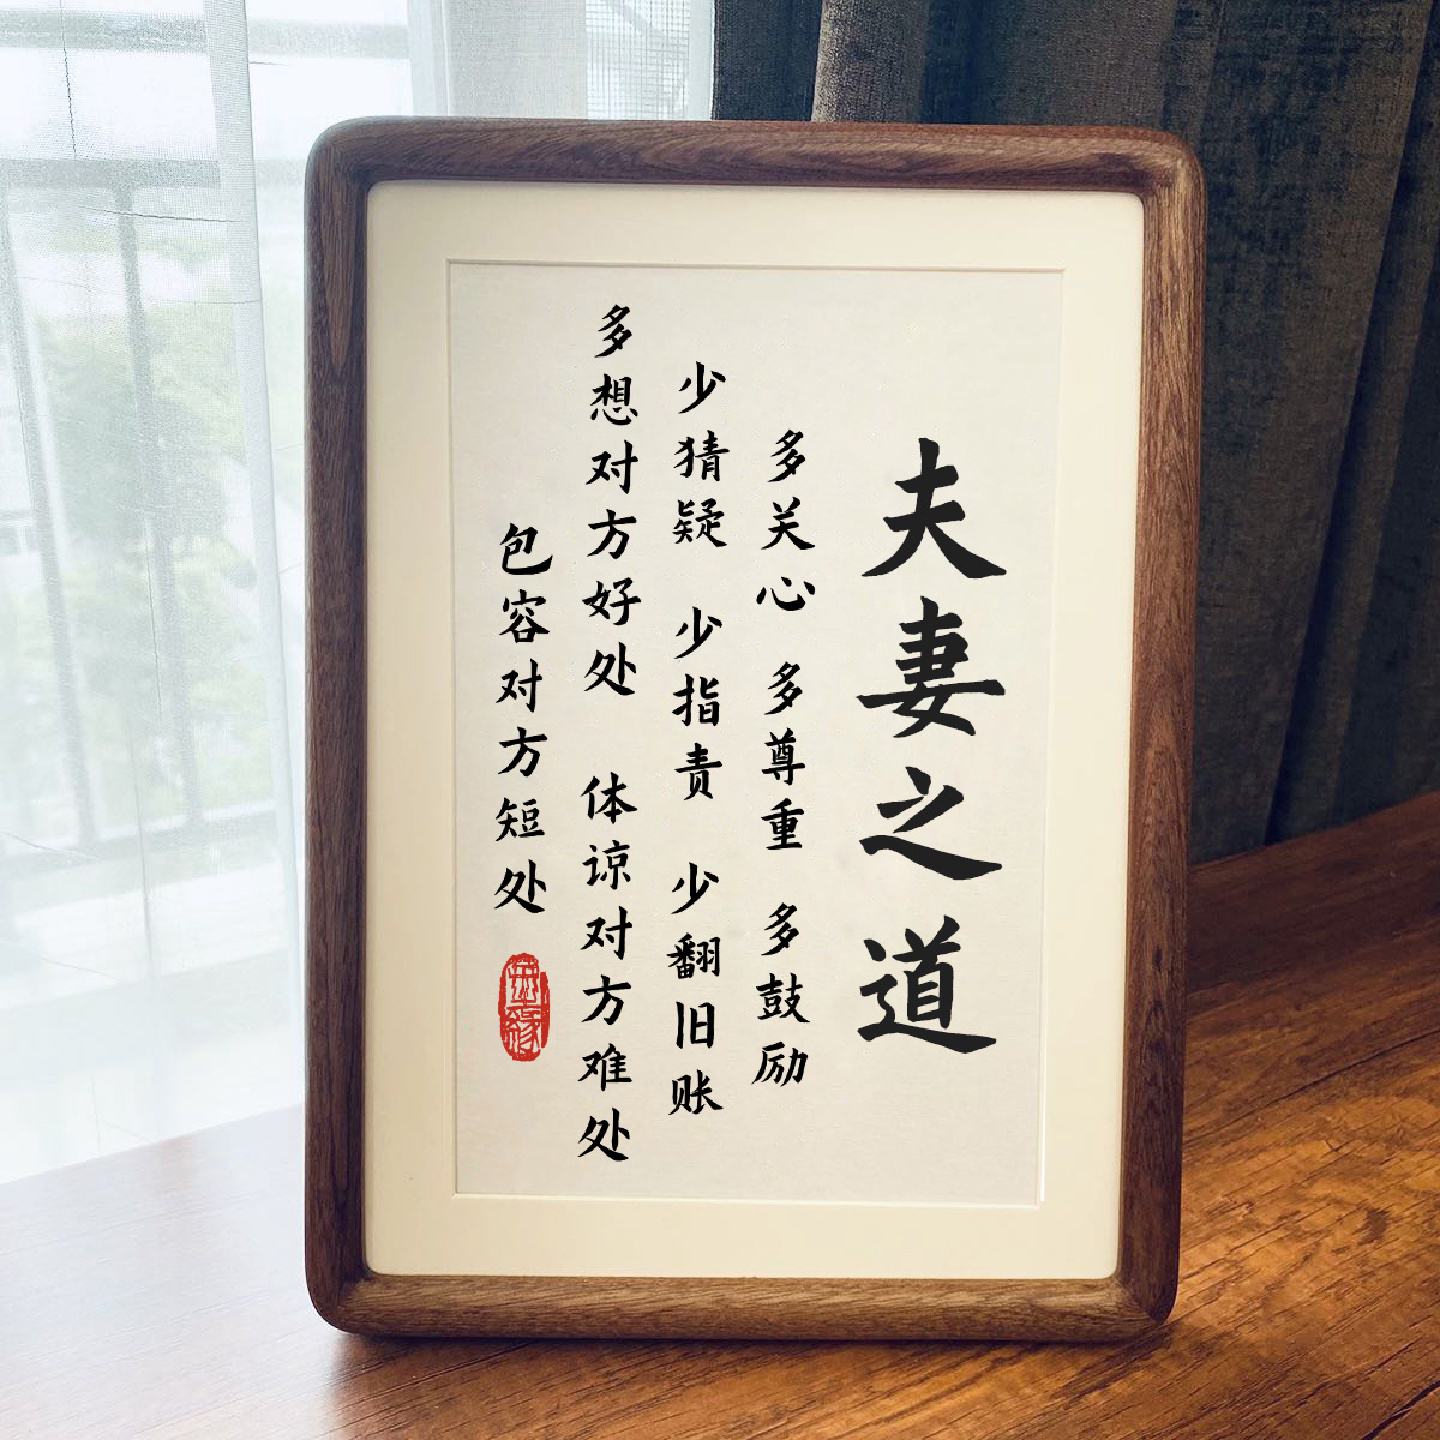 夫妻之道
多关心 多尊重 多鼓励
少猜疑 少指责 少翻旧账
多想对方好处 体谅对方难处
包容对方短处